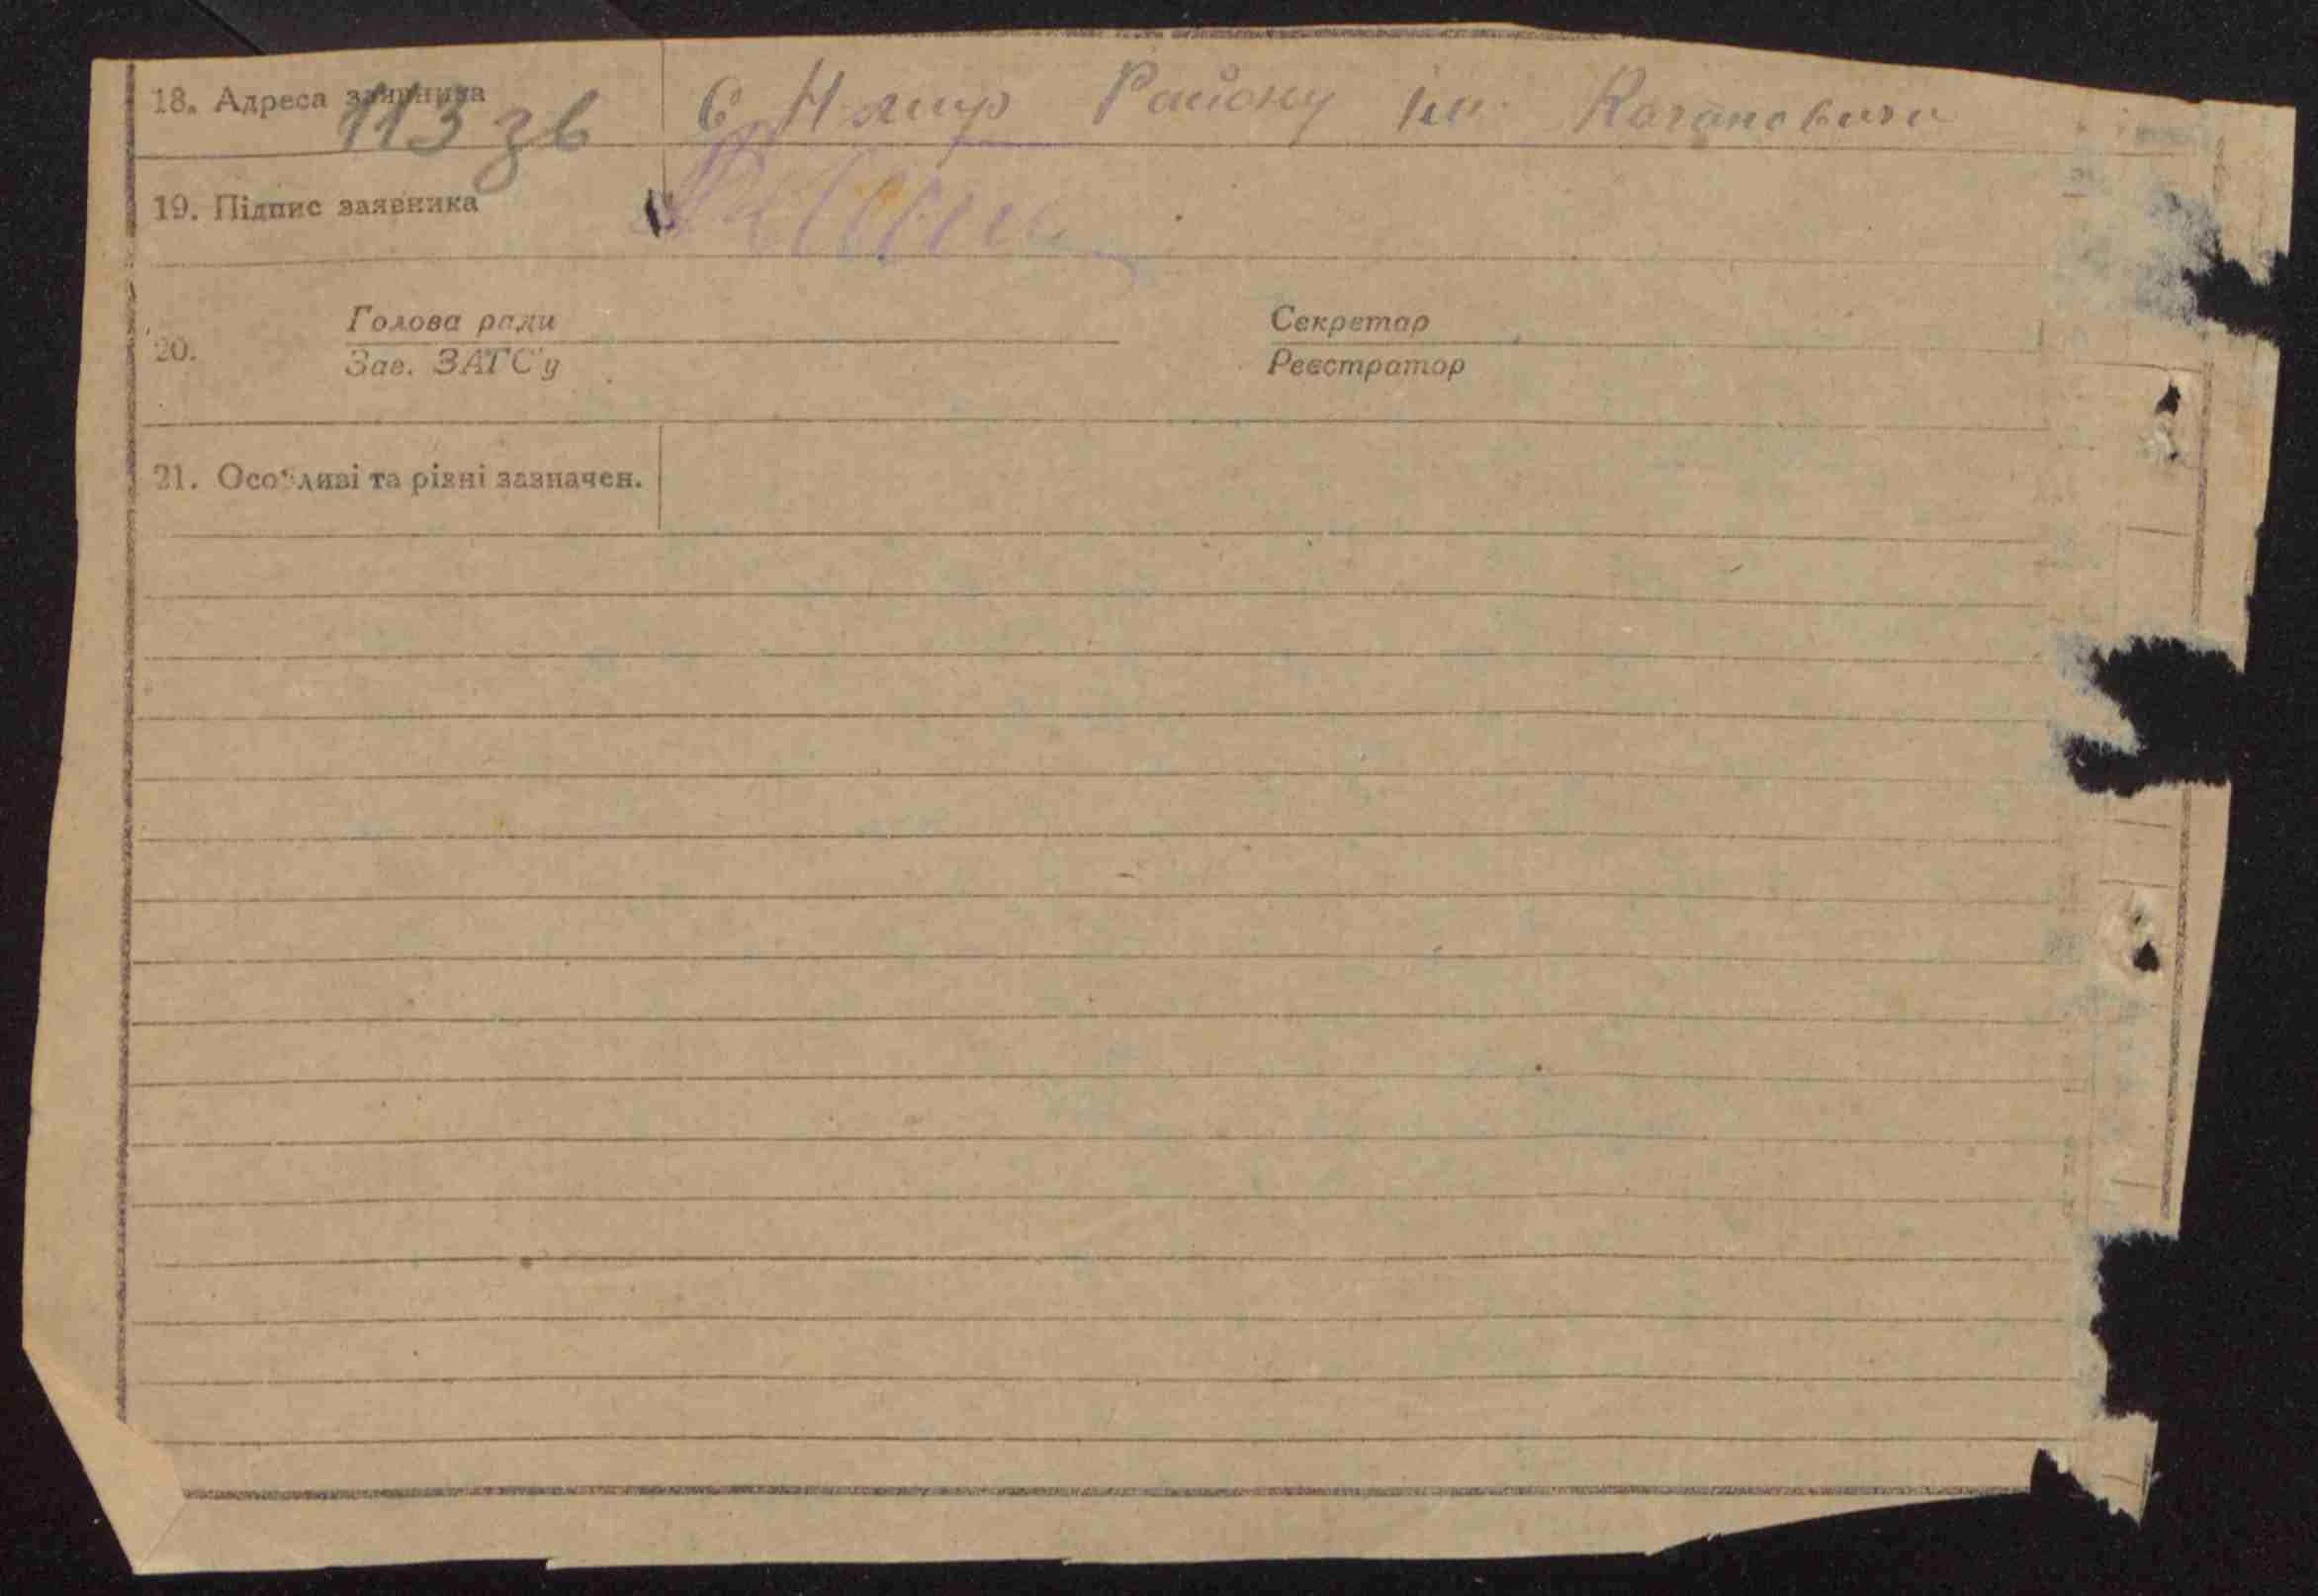 18. Адреса заявника С Н мир Району ім. Кагановича
113 зв
19. Підпис заявника
Голова ради Секретар
20.
Зав. ЗАГС'у Реєстратор
21. Особливі та різні зазначен.